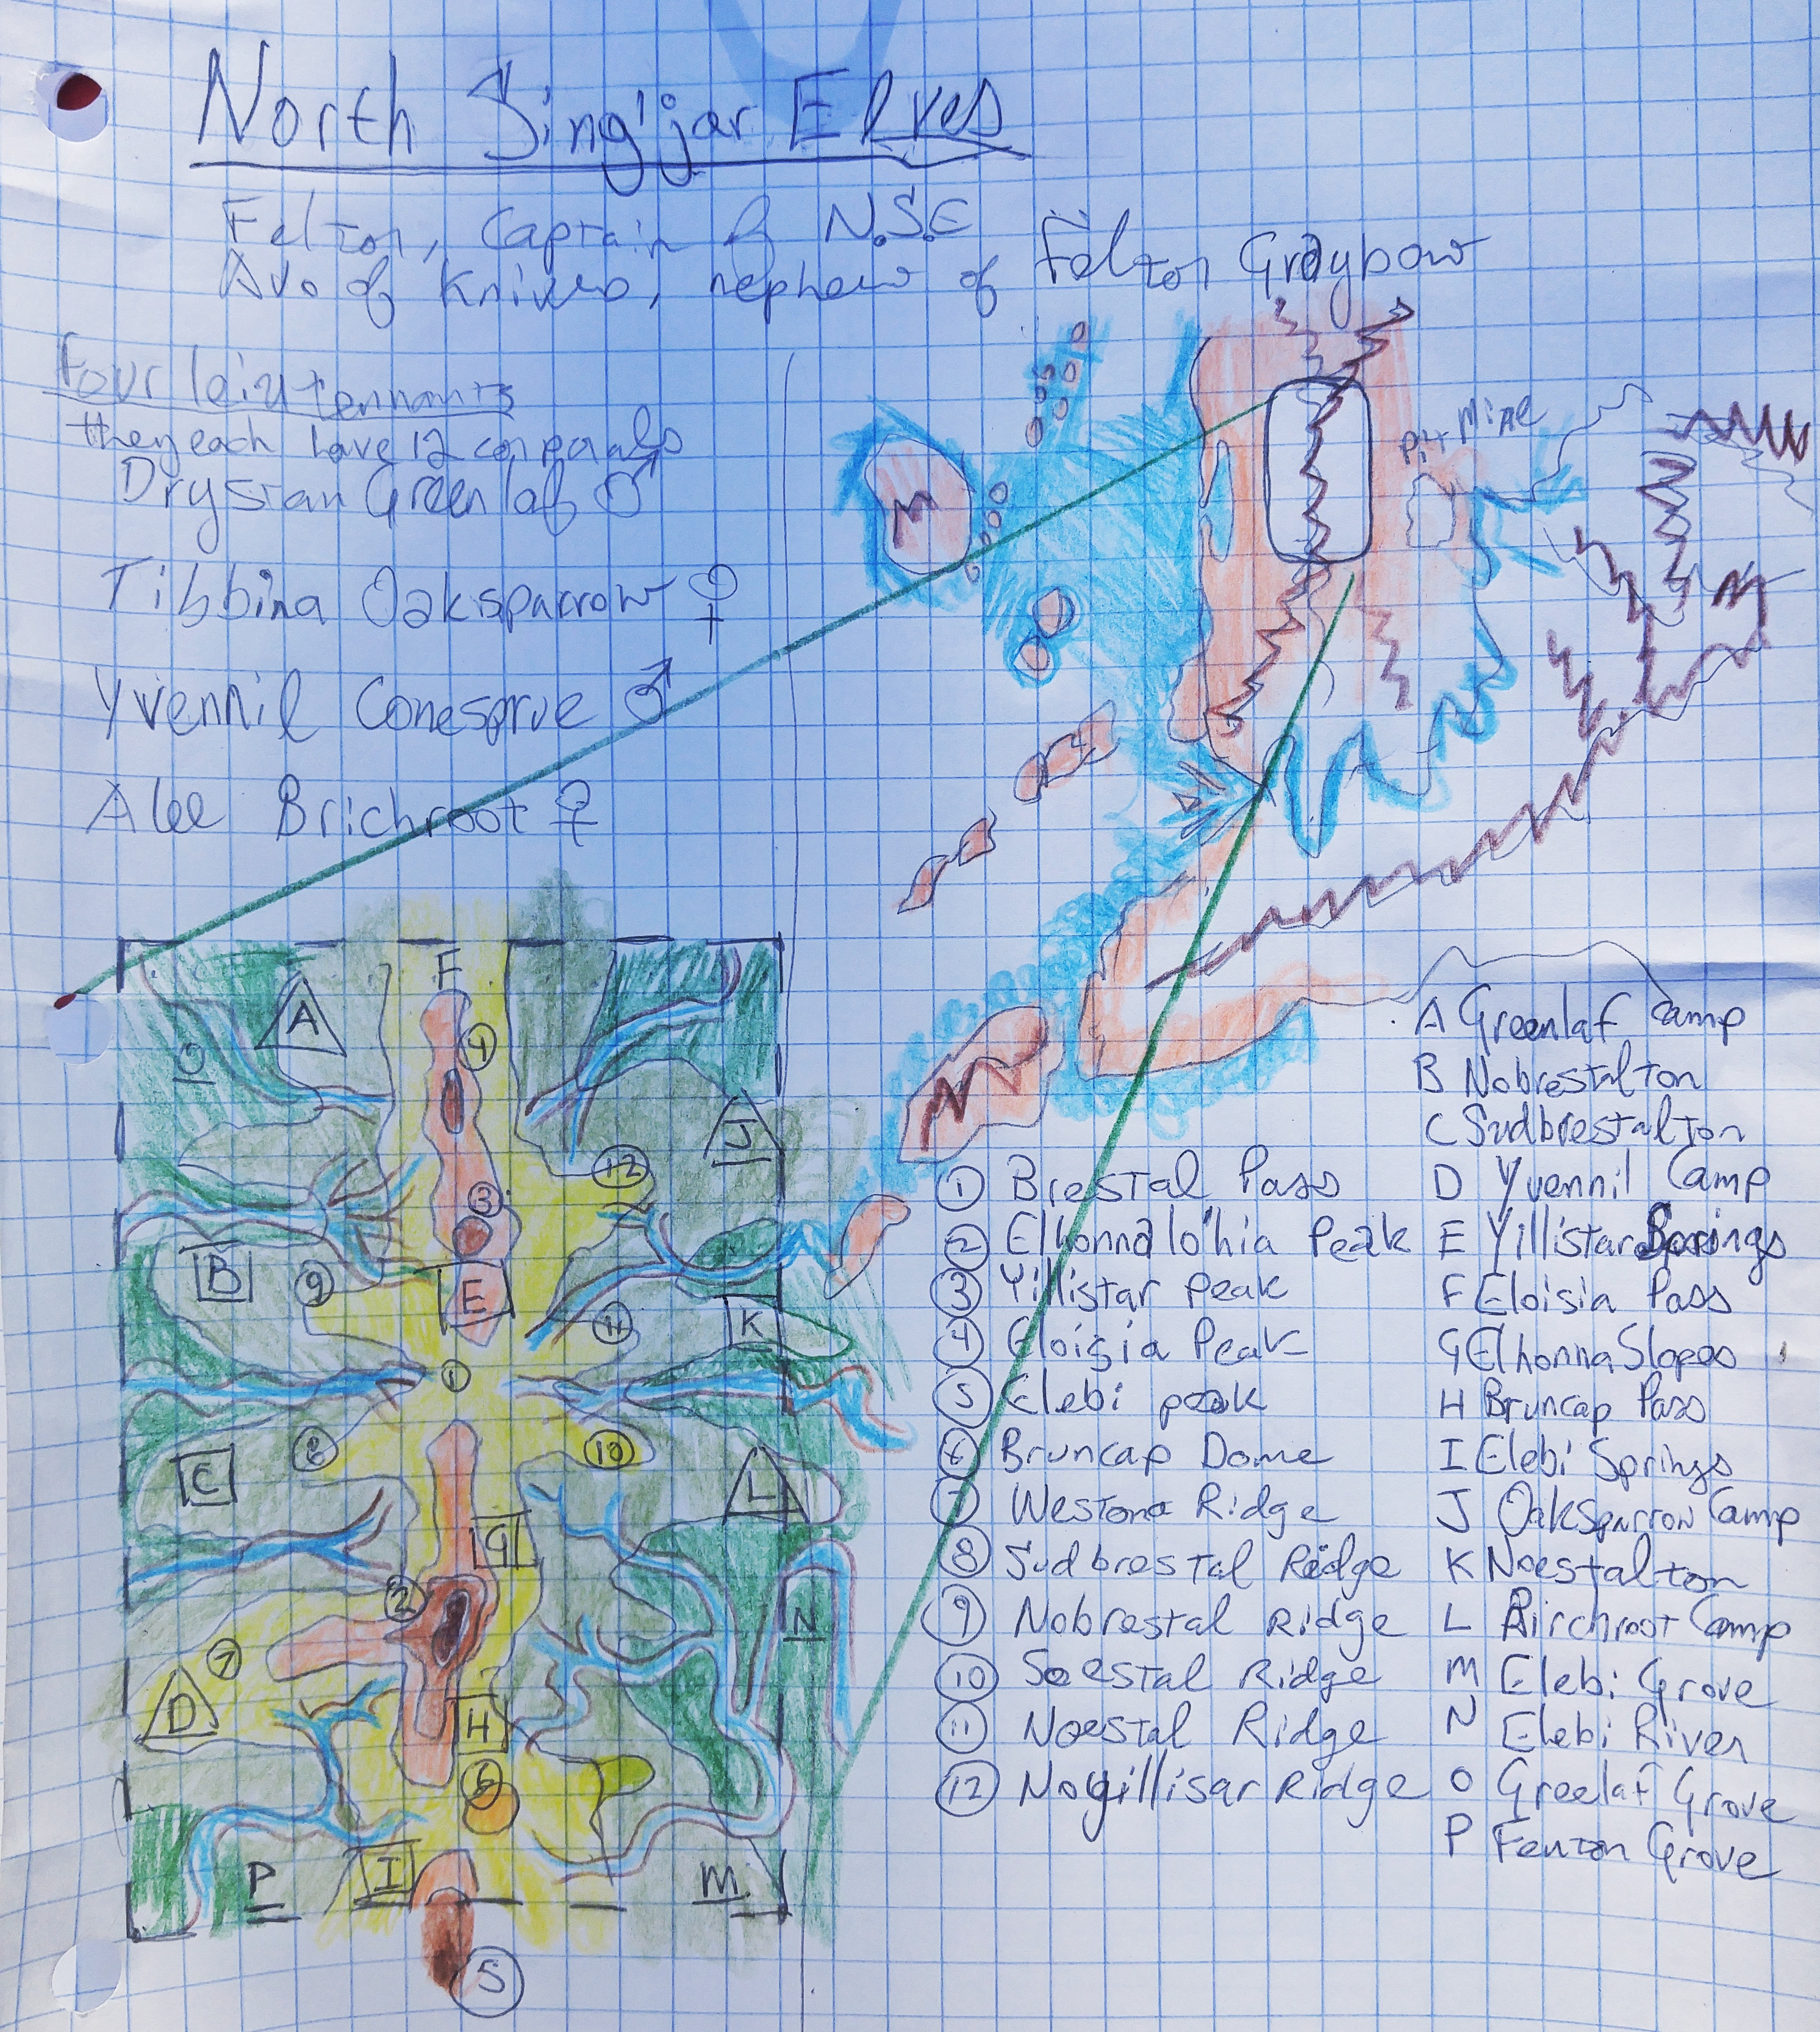 North Sing'jar Elves
Felton, Captain of N.S.E
Avo of Knives, nephew of Felton Graybow
Four leiutennants
they each have 12 corporals
Drystan Greenlaf ♂
Tibbina Oaksparrow ♀
Yvennil Conesprue ♂
Alee Brichroot ♀
Pit Mine
F
A
4
O
J
12
3
B
9
E
11
K
1
8
10
C
L
G
2
N
7
D
H
6
P
I
M
5
A Greenlaf Camp
B Nobrestalton
C Sudbrestalton
D Yvennil Camp
E Yillistar Springs
F Eloisia Pass
G Elhonna Slopes
H Bruncap Pass
I Elebi Springs
J Oaksparrow Camp
K Noestalton
L Birchroot Camp
M Elebi Grove
N Elebi River
O Greelaf Grove
P Fenton Grove
1 Brestal Pass
2 Elhonnalo'hia Peak
3 Yillistar Peak
4 Eloisia Peak
5 Elebi peak
6 Bruncap Dome
7 Westona Ridge
8 Sudbrestal Ridge
9 Nobrestal Ridge
10 Soestal Ridge
11 Noestal Ridge
12 Noyillisar Ridge